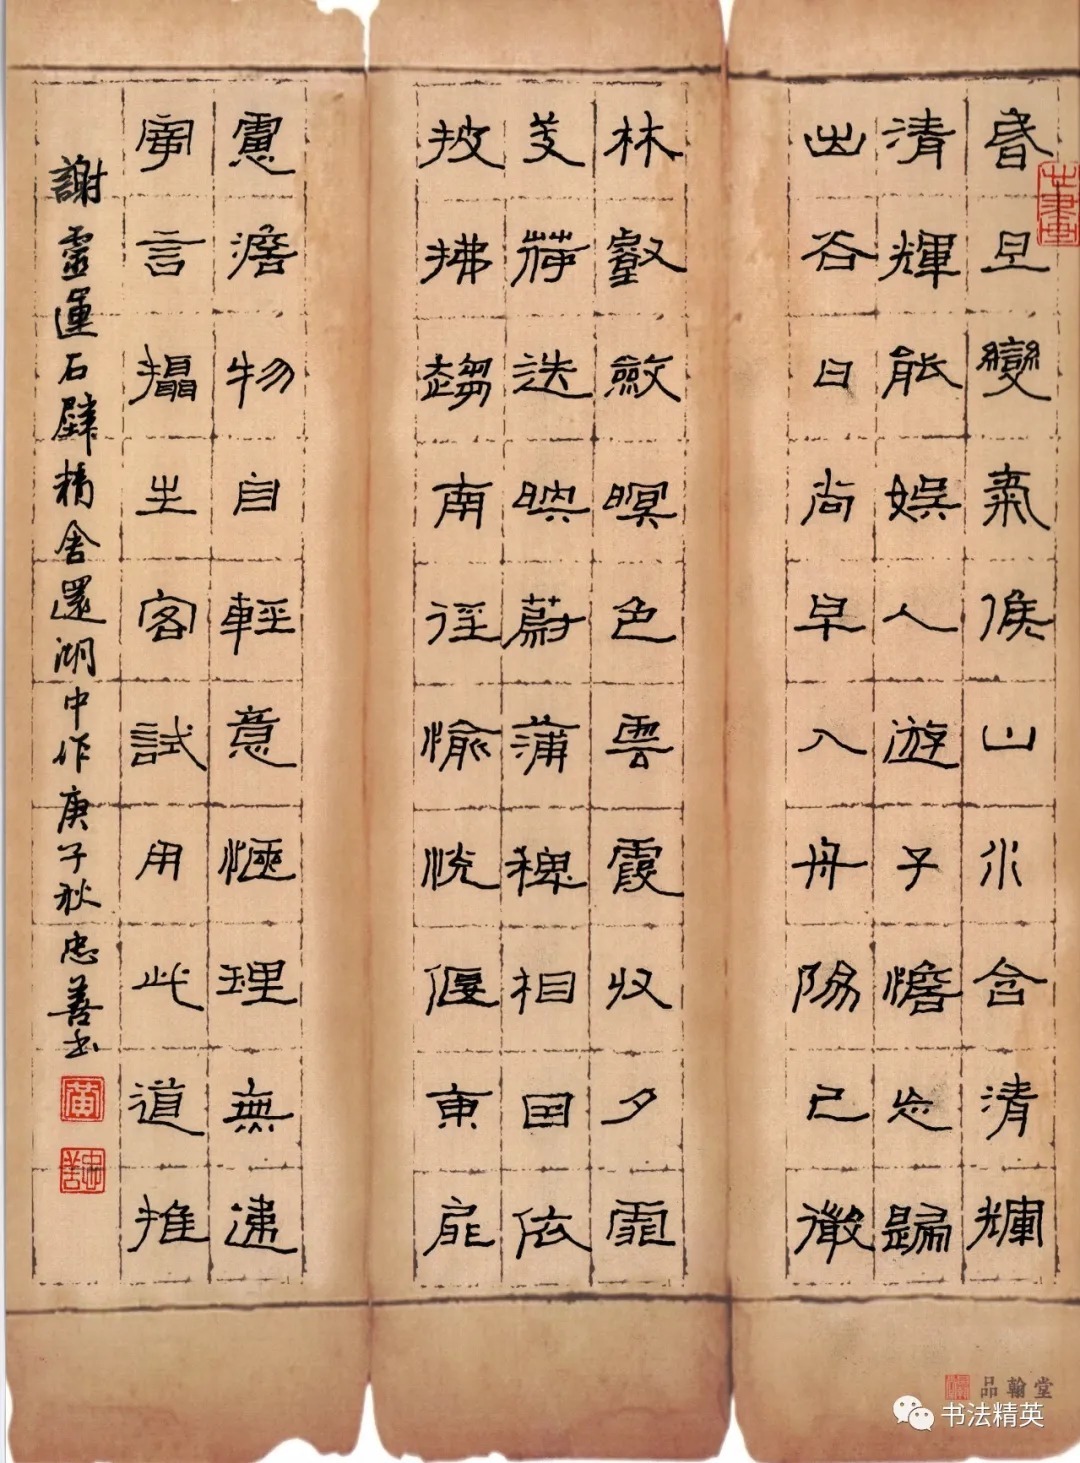 昏旦變氣候山水含清輝
清輝能娛人遊子憺忘歸
出谷日尚早入舟陽已微
林壑斂暝色雲霞收夕霏
芰荷迭映蔚蒲稗相因依
披拂趨南徑愉悅偃東扉
慮澹物自輕意愜理無違
寄言攝生客試用此道推
謝靈運石壁精舍還湖中作庚子秋忠善书
黄
忠善
品翰堂
书法精英